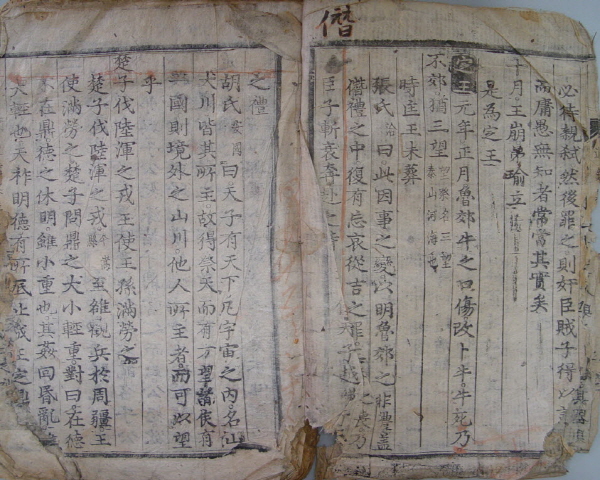 僭
必待親弑然後罪之則奸臣賊子得以
而庸愚無知者常當其實矣
十月王崩弟瑜立
是為定王
定王元年正月魯郊牛之口傷改卜牛牛死乃
不郊猶三望
時匡王未葬
張氏洽曰此因事之變以明魯郊之非禮蓋
僭禮之中復有忘哀從吉之罪
臣子斬衰
之禮
胡氏安國曰天子有天下凡宇宙之內名山
大川皆其所主故得祭天而有方望諸侯有
一國則境外之山川他人所主者而可以望
乎
楚子伐陸渾之戎王使王孫滿勞之
楚子伐陸渾之戎至雒觀兵於周疆王
使滿勞之楚子問鼎之大小輕重對曰在德
不在鼎德之休明雖小重也其姦回昏亂
大輕也天祚明德有所底止成王定